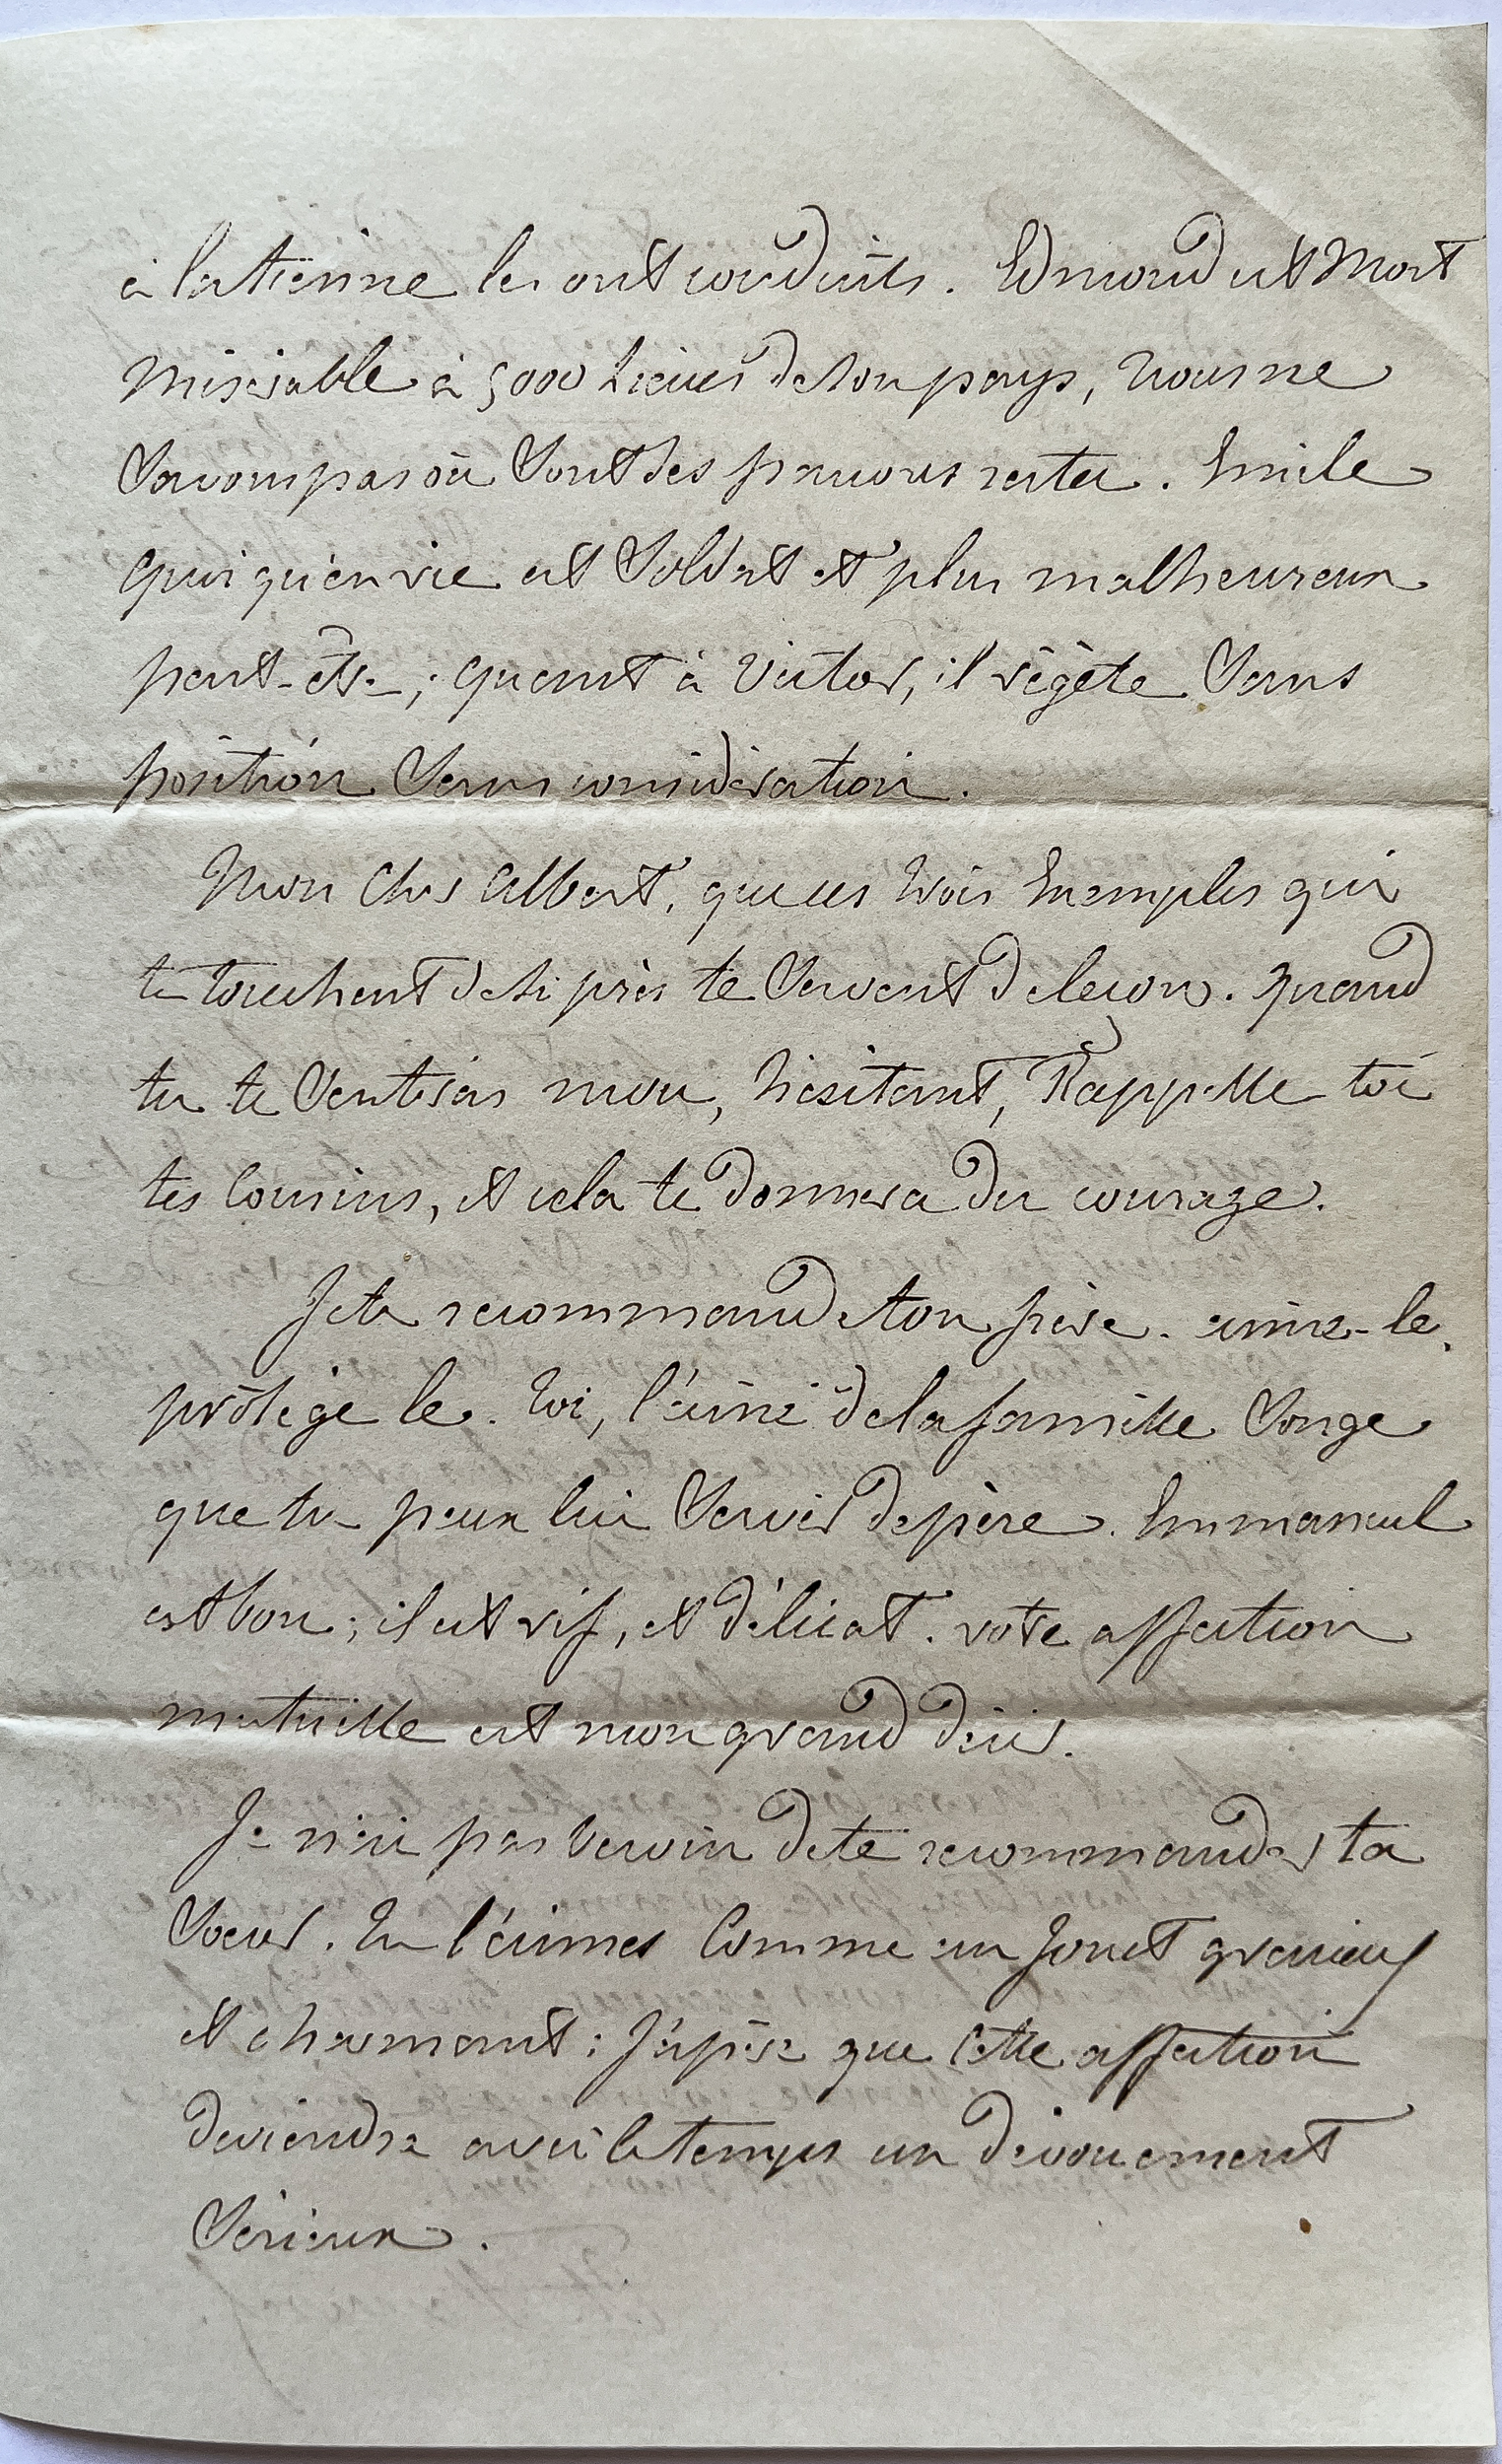 à la tienne les ont conduits. Edmond est mort
misérable à 5000 lieues de son pays, nous ne
savons pas où sont ses pauvres restes. Emile
quoiqu'en vie est soldat et plus malheureux
peut-être ; quant à Victor, il végète sans
position sans considération.
Mon cher Albert, que ces trois exemples qui
te touchent de si près te servent de leçon. quand
tu te sentiras mou, hésitant, Rappelle toi
tes cousins, et cela te donnera du courage.
Je te recommande ton frère. aime-le,
protège le. Toi, l'ainé de la famille songe
que tu peux lui servir de père. Emmanuel
est bon ; il est vif, et délicat. votre affection
mutuelle est mon grand désir.
Je n'ai pas besoin de te recommander ta
soeur. Tu l'aimes comme un jouet gracieux
et charmant : J'espère que cette affection
deviendra avec le temps un dévouement
sérieux.